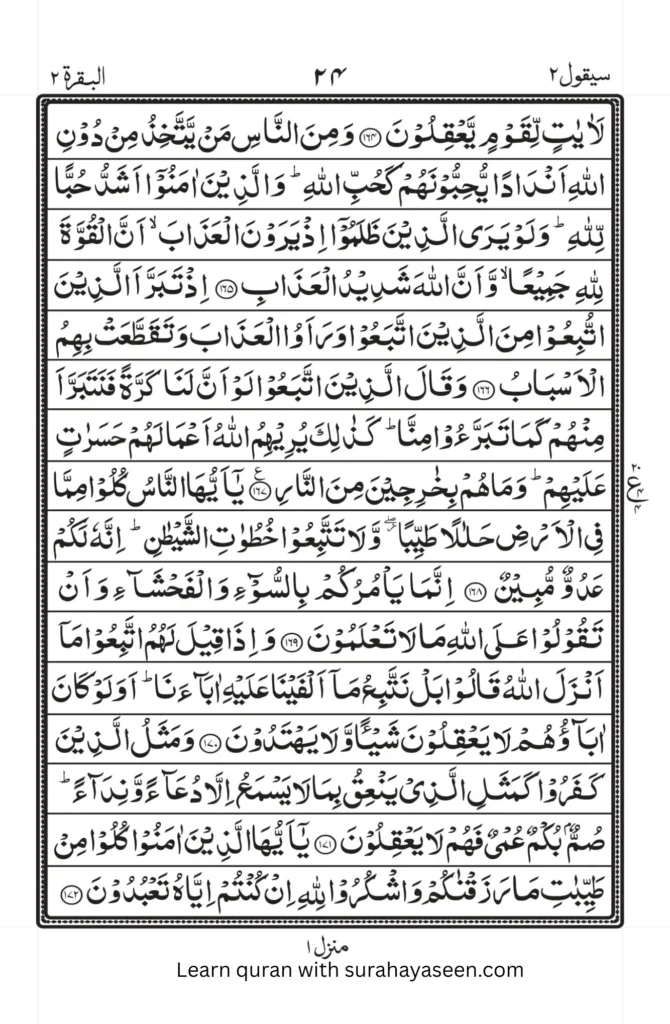 سیقول ۲
۲۴
البقرة ۲
لَاٰیٰتٍ لِّقَوْمٍ یَّعْقِلُوْنَ ﴿۱۶۴﴾ وَمِنَ النَّاسِ مَنْ یَّتَّخِذُ مِنْ دُوْنِ
اللهِ اَنْدَادًا یُّحِبُّوْنَهُمْ كَحُبِّ اللهِ ؕ وَالَّذِیْنَ اٰمَنُوْۤا اَشَدُّ حُبًّا
لِّلّٰهِ ؕ وَلَوْ یَرَی الَّذِیْنَ ظَلَمُوْۤا اِذْ یَرَوْنَ الْعَذَابَ ۙ اَنَّ الْقُوَّةَ
لِلّٰهِ جَمِیْعًا ۙ وَّاَنَّ اللهَ شَدِیْدُ الْعَذَابِ ﴿۱۶۵﴾ اِذْ تَبَرَّاَ الَّذِیْنَ
اتُّبِعُوْا مِنَ الَّذِیْنَ اتَّبَعُوْا وَرَاَوُا الْعَذَابَ وَتَقَطَّعَتْ بِهِمُ
الْاَسْبَابُ ﴿۱۶۶﴾ وَقَالَ الَّذِیْنَ اتَّبَعُوْا لَوْ اَنَّ لَنَا كَرَّةً فَنَتَبَرَّاَ
مِنْهُمْ كَمَا تَبَرَّءُوْا مِنَّا ؕ كَذٰلِكَ یُرِیْهِمُ اللهُ اَعْمَالَهُمْ حَسَرٰتٍ
عَلَیْهِمْ ؕ وَمَا هُمْ بِخٰرِجِیْنَ مِنَ النَّارِ ﴿۱۶۷﴾ ع یٰۤاَیُّهَا النَّاسُ كُلُوْا مِمَّا
فِی الْاَرْضِ حَلٰلًا طَیِّبًا ۖ وَّلَا تَتَّبِعُوْا خُطُوٰتِ الشَّیْطٰنِ ؕ اِنَّهٗ لَكُمْ
عَدُوٌّ مُّبِیْنٌ ﴿۱۶۸﴾ اِنَّمَا یَاْمُرُكُمْ بِالسُّوْٓءِ وَالْفَحْشَآءِ وَاَنْ
تَقُوْلُوْا عَلَی اللهِ مَا لَا تَعْلَمُوْنَ ﴿۱۶۹﴾ وَاِذَا قِیْلَ لَهُمُ اتَّبِعُوْا مَاۤ
اَنْزَلَ اللهُ قَالُوْا بَلْ نَتَّبِعُ مَاۤ اَلْفَیْنَا عَلَیْهِ اٰبَآءَنَا ؕ اَوَلَوْ كَانَ
اٰبَآؤُهُمْ لَا یَعْقِلُوْنَ شَیْـًٔا وَّلَا یَهْتَدُوْنَ ﴿۱۷۰﴾ وَمَثَلُ الَّذِیْنَ
كَفَرُوْا كَمَثَلِ الَّذِیْ یَنْعِقُ بِمَا لَا یَسْمَعُ اِلَّا دُعَآءً وَّنِدَآءً ؕ
صُمٌّۢ بُكْمٌ عُمْیٌ فَهُمْ لَا یَعْقِلُوْنَ ﴿۱۷۱﴾ یٰۤاَیُّهَا الَّذِیْنَ اٰمَنُوْا كُلُوْا مِنْ
طَیِّبٰتِ مَا رَزَقْنٰكُمْ وَاشْكُرُوْا لِلّٰهِ اِنْ كُنْتُمْ اِیَّاهُ تَعْبُدُوْنَ ﴿۱۷۲﴾
منزل ۱
Learn quran with surahayaseen.com